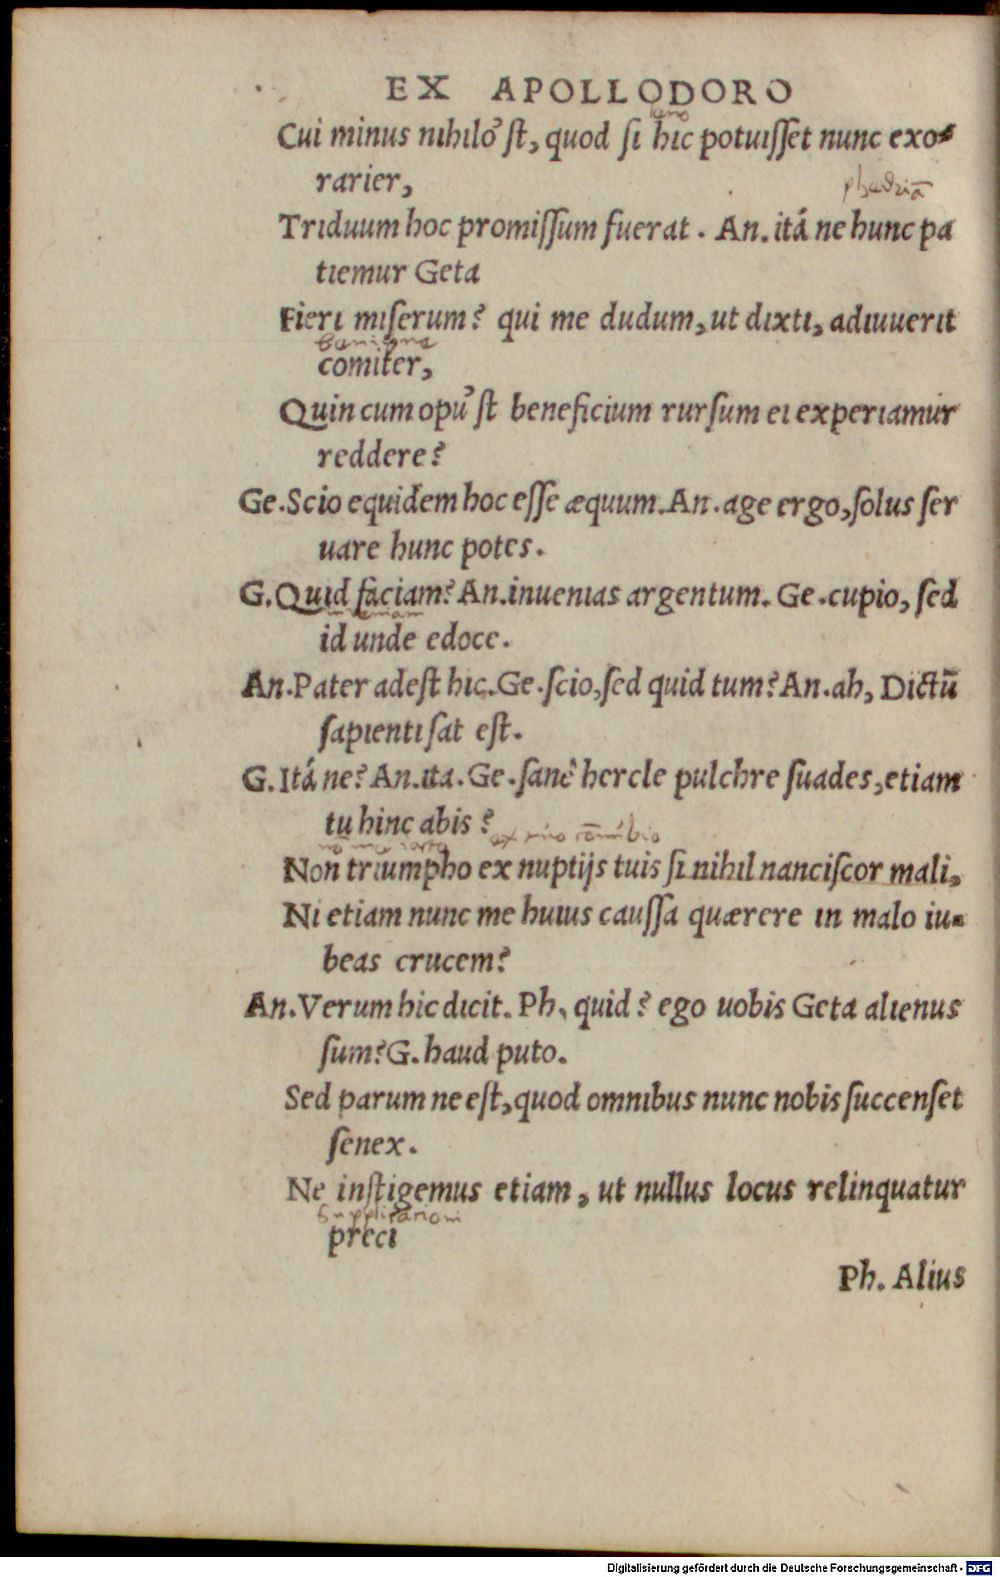 EX APOLLODORO
leno
Cui minus nihilo᾽st, quod si hic potuisset nunc exo-
rarier,
phędriā
Triduum hoc promissum fuerat. An. itá ne hunc pa
tiemur Geta
Fieri miserum? qui me dudum, ut dixti, adiuuerit
benigne
comiter,
Quin cum opu᾽st beneficium rursum ei experiamur
reddere?
Ge. Scio equidem hoc esse æquum. An. age ergo, solus ser
uare hunc potes.
G. Quid faciam? An. inuenias argentum. Ge. cupio, sed
inueniam
id unde edoce.
An. Pater adest hic. Ge. scio, sed quid tum? An. ah, Dictū
sapienti sat est.
G. Itá ne? An. ita. Ge. sanè hercle pulchre suades, etiam
tu hinc abis?
ex tuo cōnubio
Non triumpho ex nuptijs tuis si nihil nanciscor mali,
Ni etiam nunc me huius caussa quærere in malo iu-
beas crucem?
An. Verum hic dicit. Ph. quid? ego uobis Geta alienus
sum? G. haud puto.
Sed parum ne est, quod omnibus nunc nobis succenset
senex.
Ne instigemus etiam, ut nullus locus relinquatur
supplicationi
preci
Ph. Alius
Digitalisierung gefördert durch die Deutsche Forschungsgemeinschaft - DFG